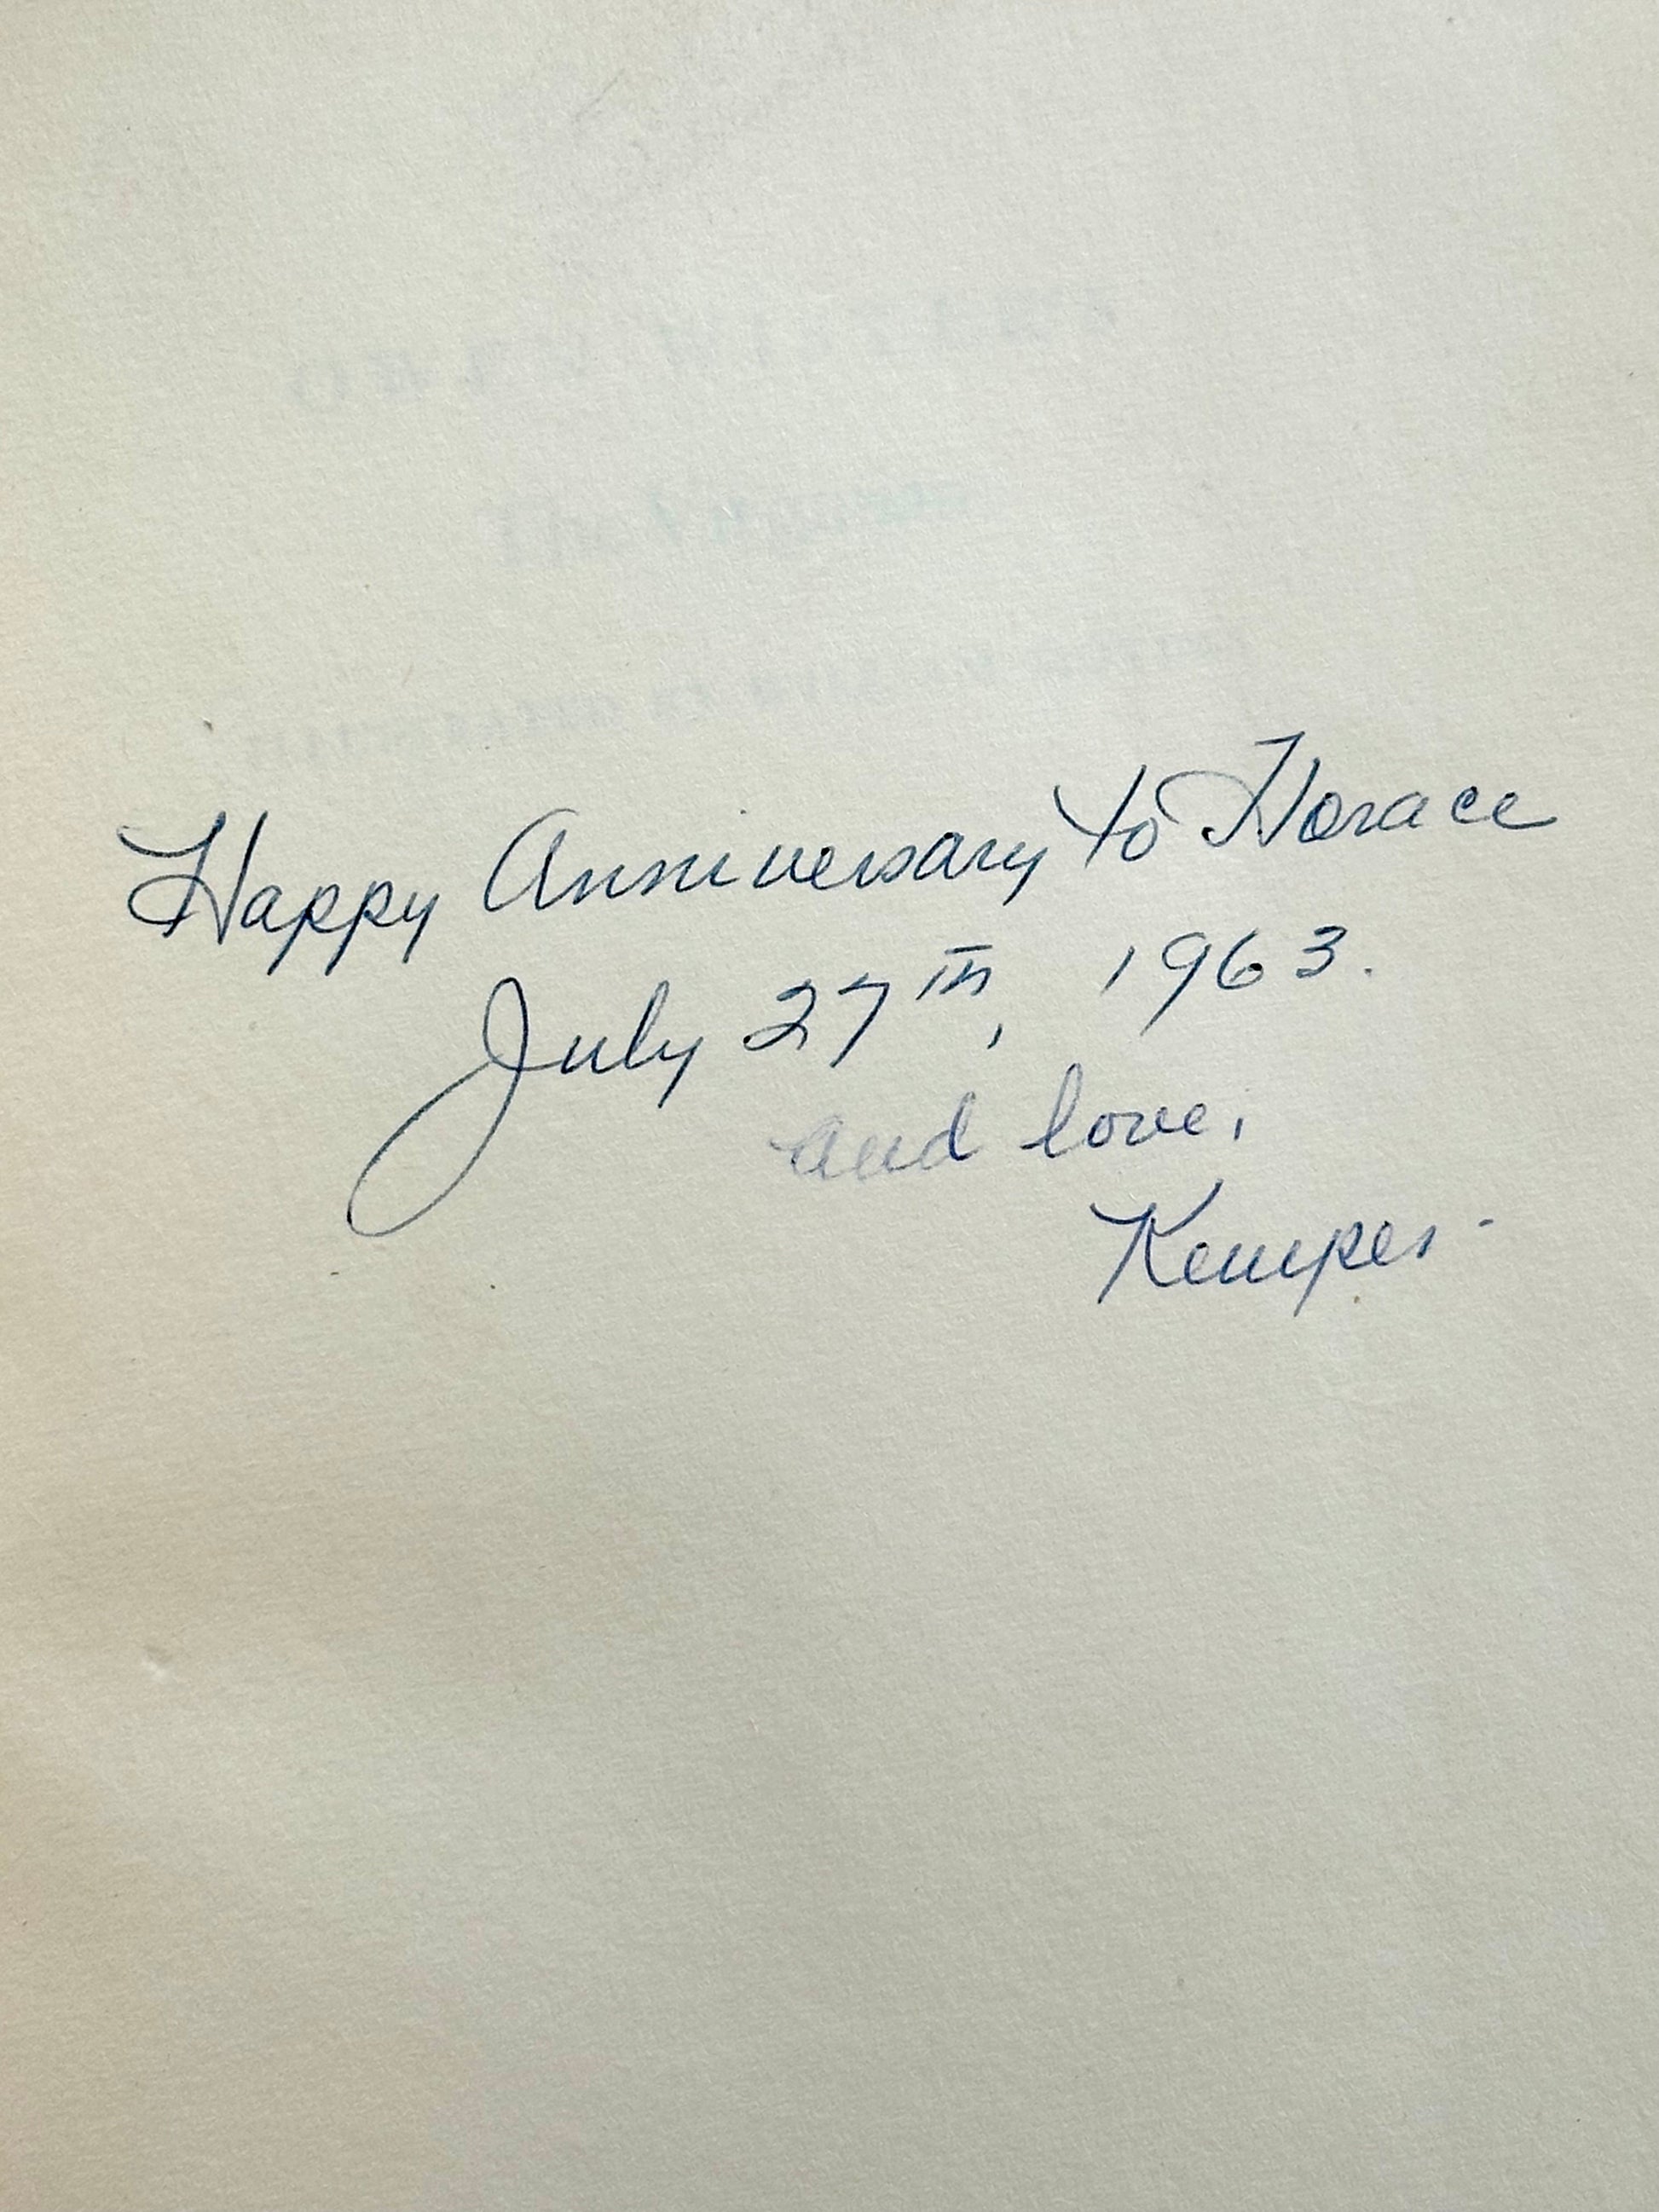 Happy Anniversary to Horace
July 27th, 1963.
and love,
Kemper